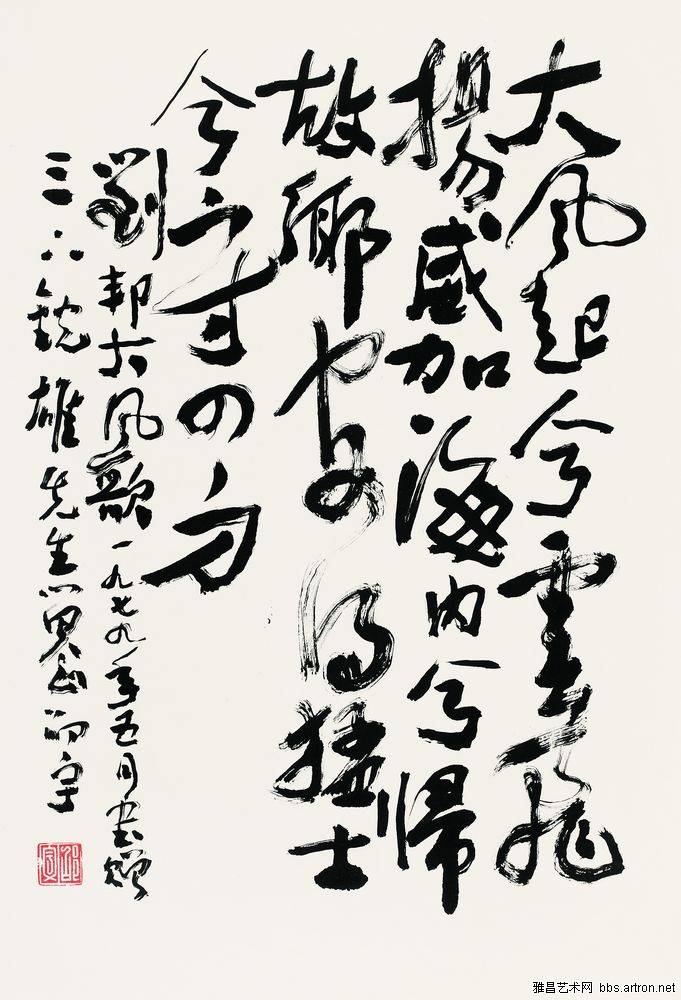 大風起兮雲飛
揚威加海内兮帰
故鄉安得猛士
兮守四方
劉邦大風歌一九七九年五月書贈
三六 雄先生 邵宇
邵宇
雅昌艺术网 bbs.artron.net